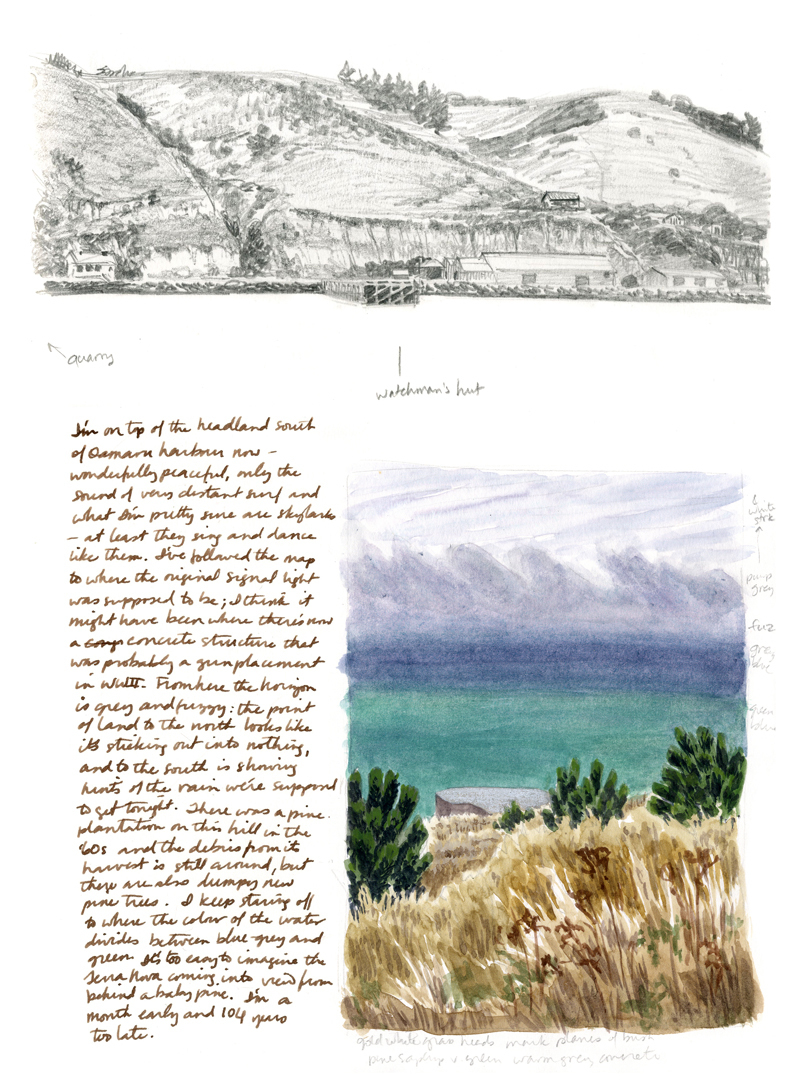 quarry
watchman's hut
I'm on top of the headland south
of Oamaru harbour now –
wonderfully peaceful, only the
sound of very distant surf and
what I'm pretty sure are skylarks
– at least they sing and dance
like them. I've followed the map
to where the original signal light
was supposed to be; I think it
might have been where there's now
a concrete structure that
was probably a gun placement
in WWII. From here the horizon
is grey and fuzzy: the point
of land to the north looks like
it's sticking out into nothing,
and to the south is showing
hints of the rain we're supposed
to get tonight. There was a pine
plantation on this hill in the
'60s and the debris from its
harvest is still around, but
there are also dumpy new
pine trees. I keep staring off
to where the colour of the water
divides between blue-grey and
green. It's too easy to imagine the
Terra Nova coming into view from
behind a baby pine. I'm a
month early and 104 years
too late.
&
white
purp
grey
fuz
grey
blue
green
gold white grass heads mark planes of
pine sap v green warm grey concrete